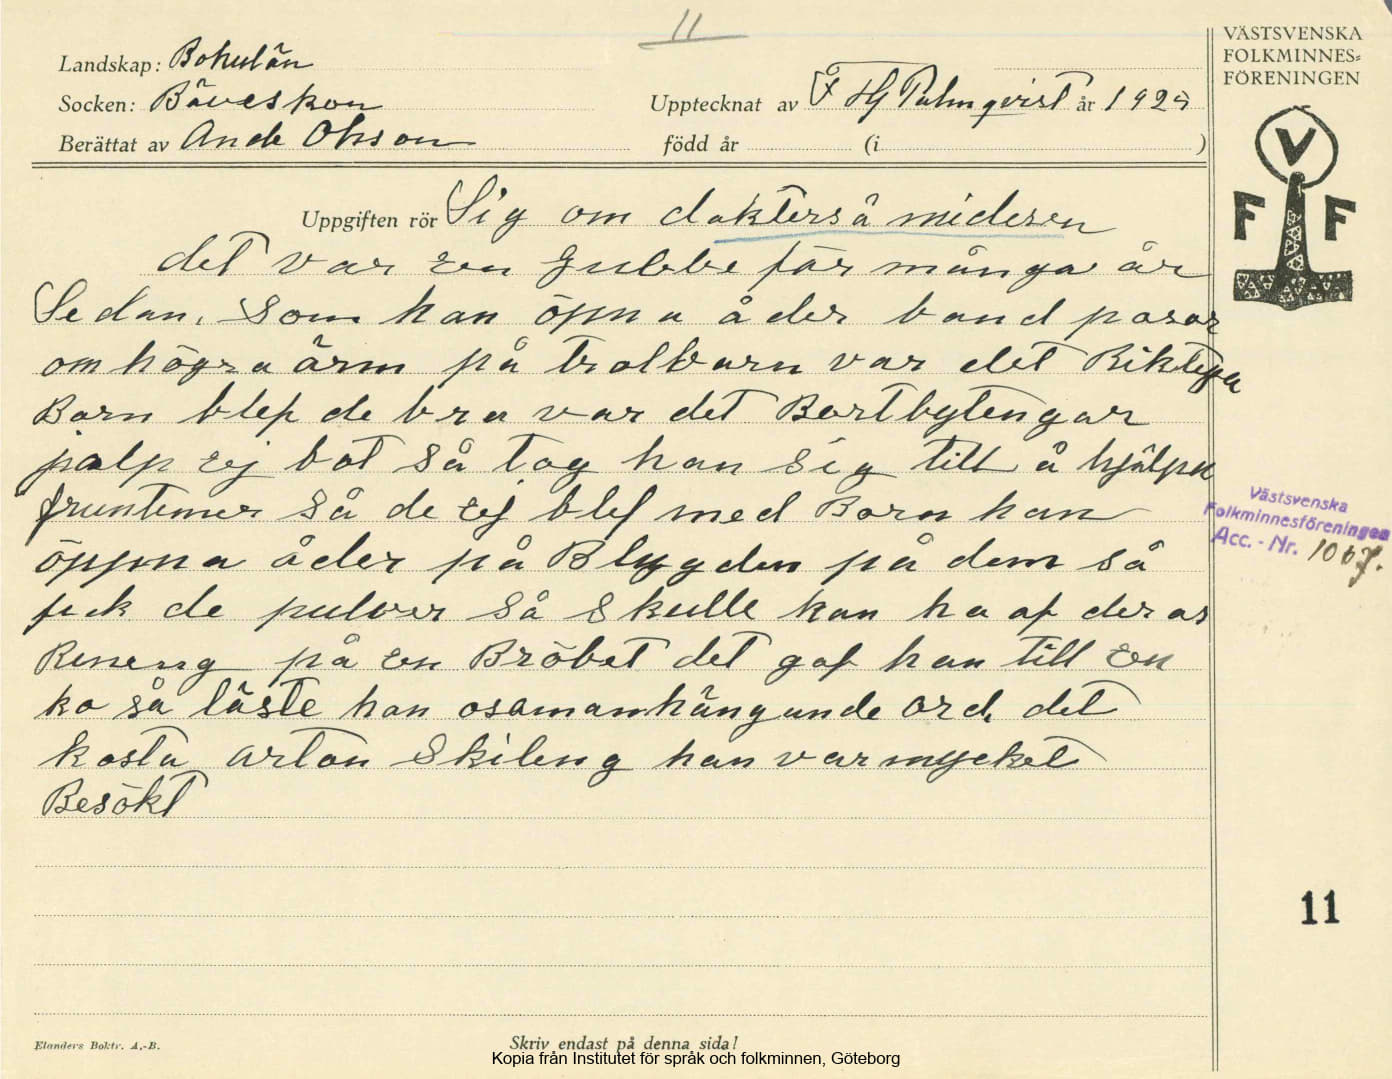 11
Landskap: Bohulän
Socken: Bäveskon
Berättat av Ande Ohson
Upptecknat av F Hj Palmqvist år 1925
född år (i )
VÄSTSVENSKA
FOLKMINNES=
FÖRENINGEN
V
F F
Uppgiften rör Sig om dokterså midesen
det var een gubbe för många år
Sedan, som han öpna åder band posor
om högra ärm på trolbarn var det Riktiga
Barn blef de bra var det Bortbytengar
jalp ej bot så tog han sig till å hjälpa
fruntimer så de ej blef med Barn han
öppna åder på Blygden på dem så
fick de pulver så skulle han ha af deras
Reneng på een Bröbet det gaf han till een
ko så läste han osamanhängande ord det
kosta arton Skileng han var mycket
Besökt
Västsvenska
Folkminnesföreningen
Acc. - Nr. 1067.
11
Elanders Boktr. A.-B.
Skriv endast på denna sida!
Kopia från Institutet för språk och folkminnen, Göteborg